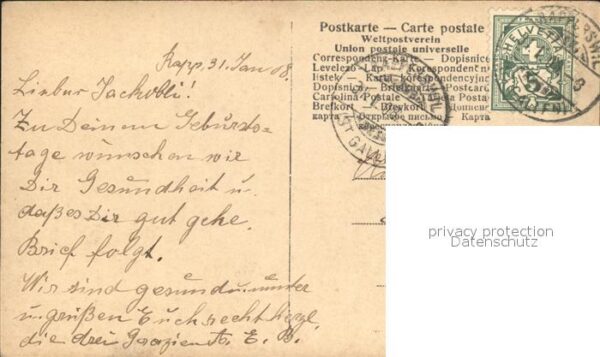 Rapp. 31. Jan 08.
Lieber Jackobli!
Zu Deinem Geburts-
tage wünschen wir
Dir Gesundheit u.
daß es Dir gut gehe.
Brief folgt.
Wir sind gesund u. munter
u. grüßen Euch recht herzl.
die drei Grazien A. E. B.
Postkarte — Carte postale
Weltpostverein
Union postale universelle
Correspondenz-Karte — Dopisnice
Levelező-Lap — Korespondenční
lístek — Karta korespondencyjna
Dopisnica — Briefkaart — Postcard
Cartolina Postale — Tarjeta Postal
Brefkort — Brevkort
карта — Открытое письмо — Карта
HELVETIA
5
privacy protection
Datenschutz